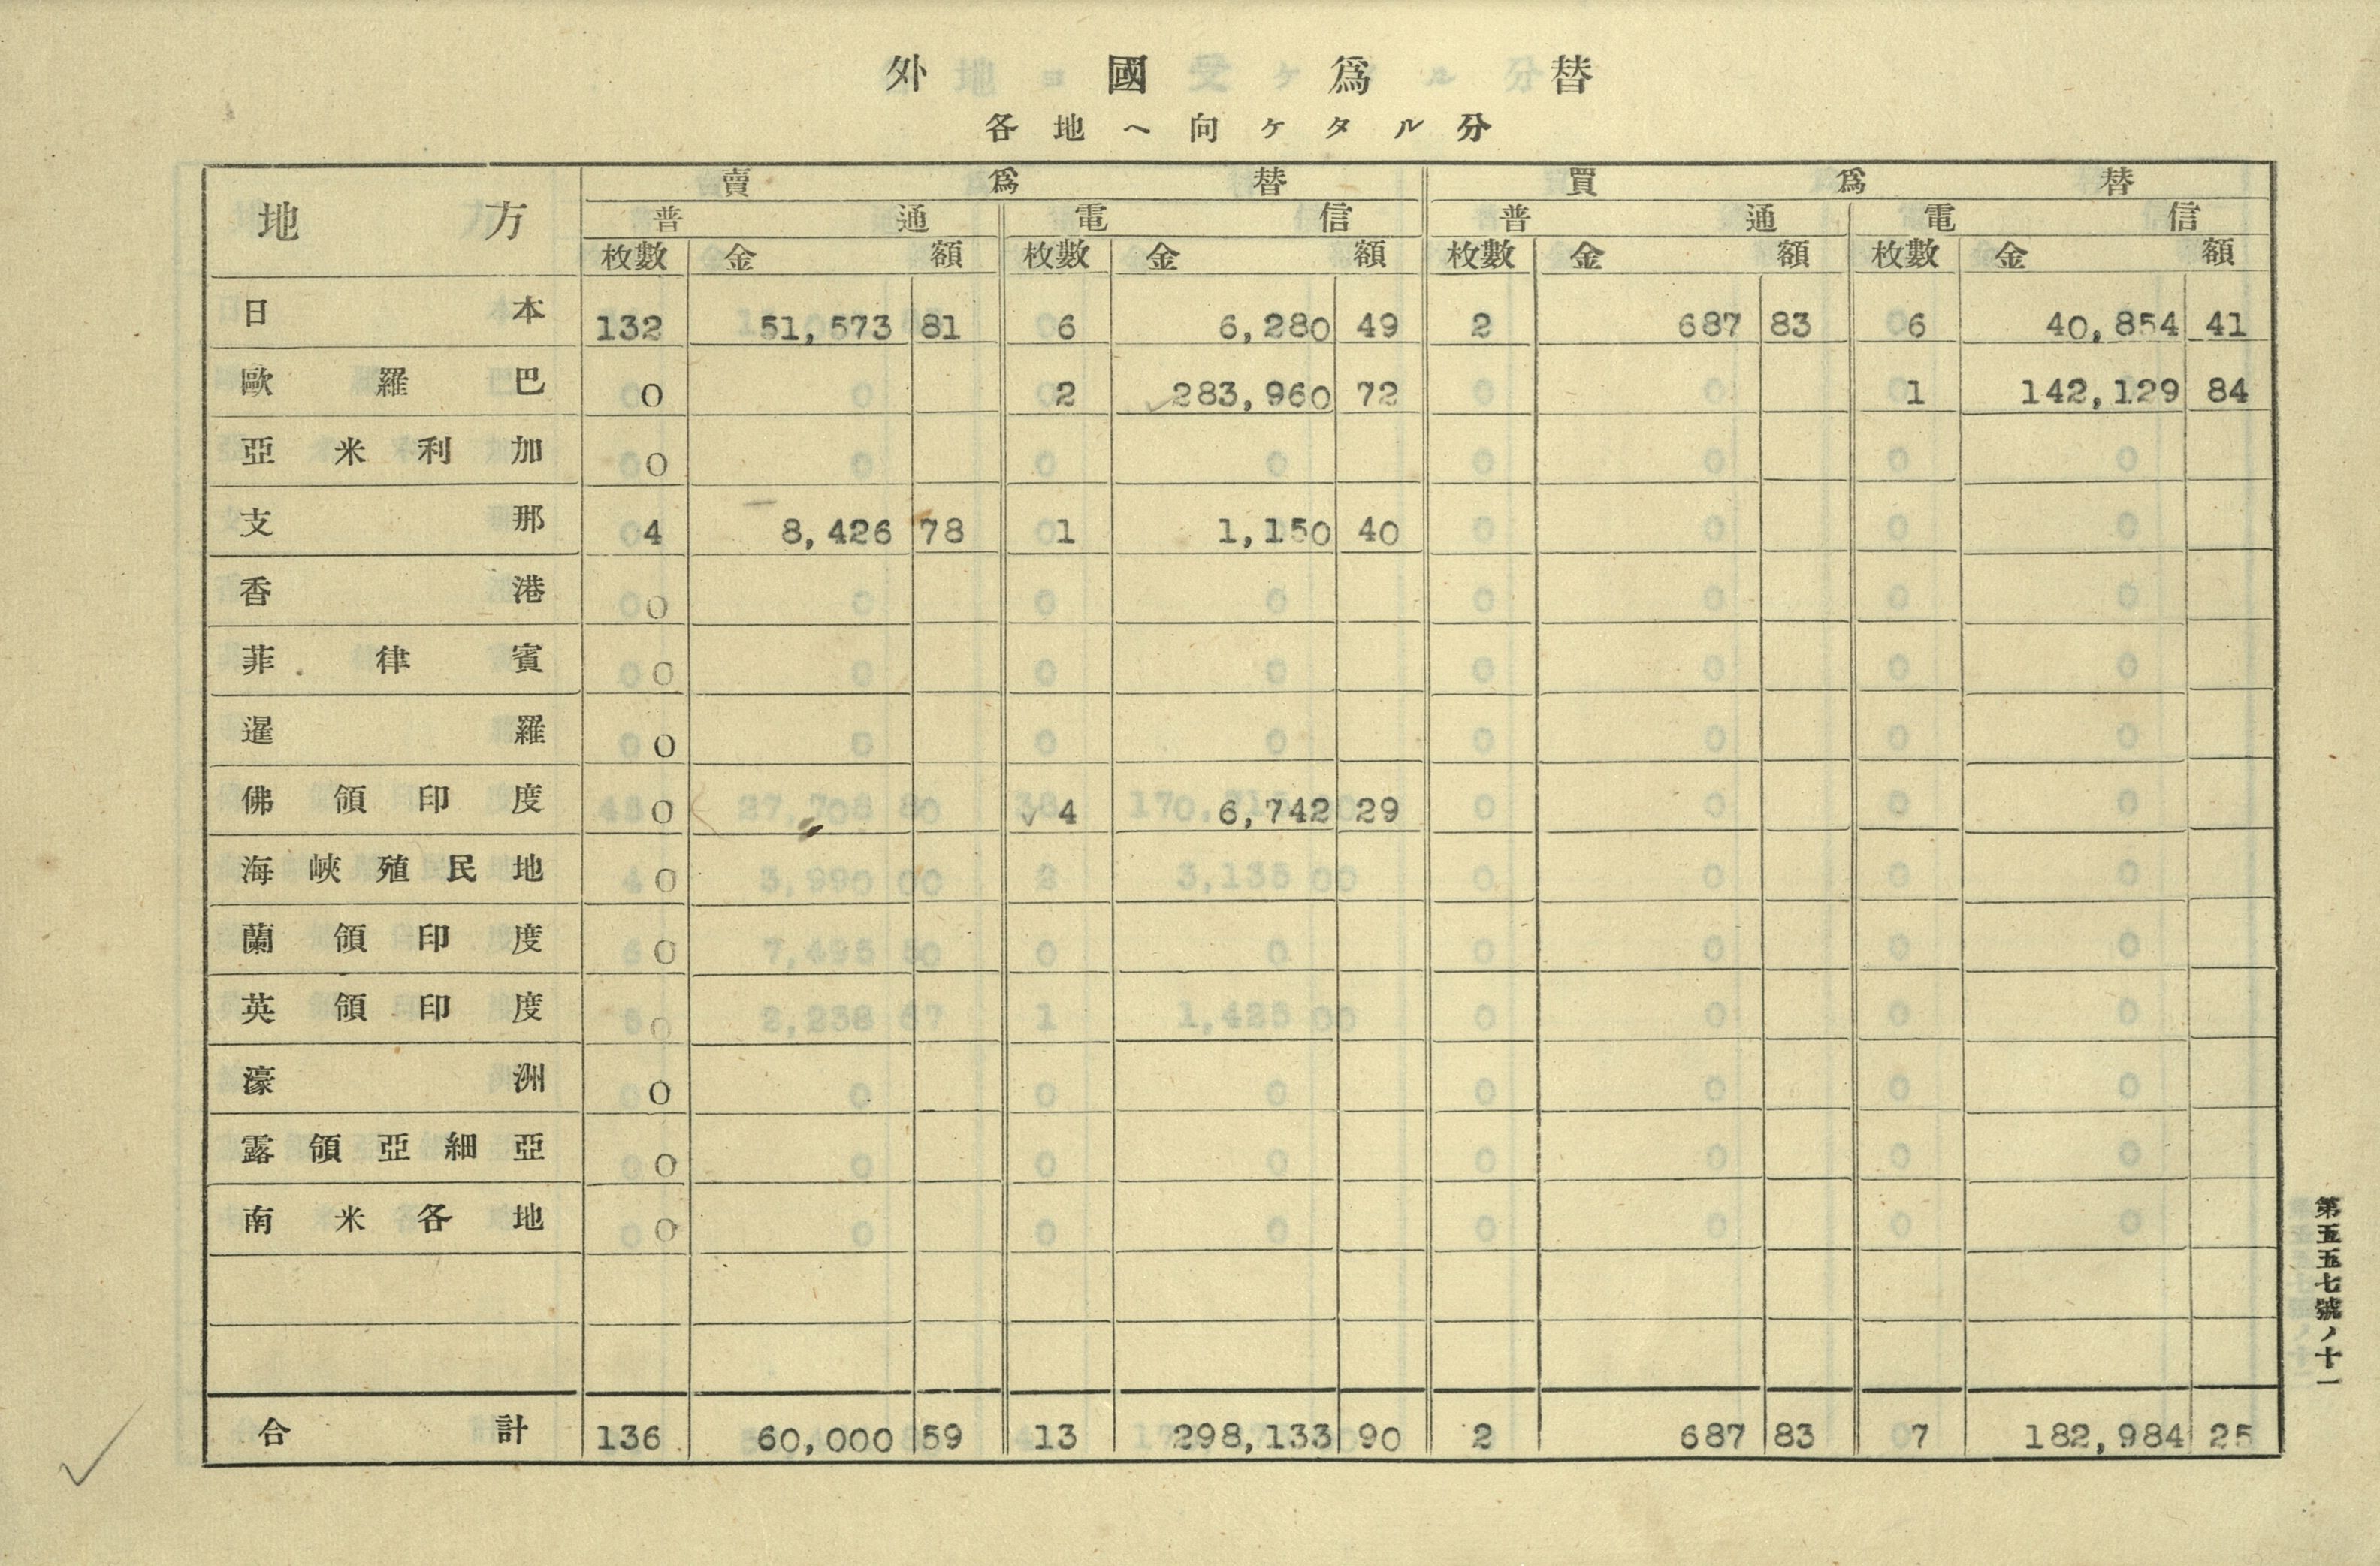 外國爲替
各地ヘ向ケタル分
地方 賣爲替 買爲替
普通 電信 普通 電信
枚數 金額 枚數 金額 枚數 金額 枚數 金額
日本 132 51,573 81 6 6,280 49 2 687 83 6 40,854 41
歐羅巴 0 2 283,960 72 1 142,129 84
亞米利加 0
支那 4 8,426 78 1 1,150 40
香港 0
菲律賓 0
暹羅 0
佛領印度 0 4 6,742 29
海峽殖民地 0
蘭領印度 0
英領印度 0
濠洲 0
露領亞細亞 0
南米各地 0
合計 136 60,000 59 13 298,133 90 2 687 83 7 182,984 25
第五五七號ノ十一